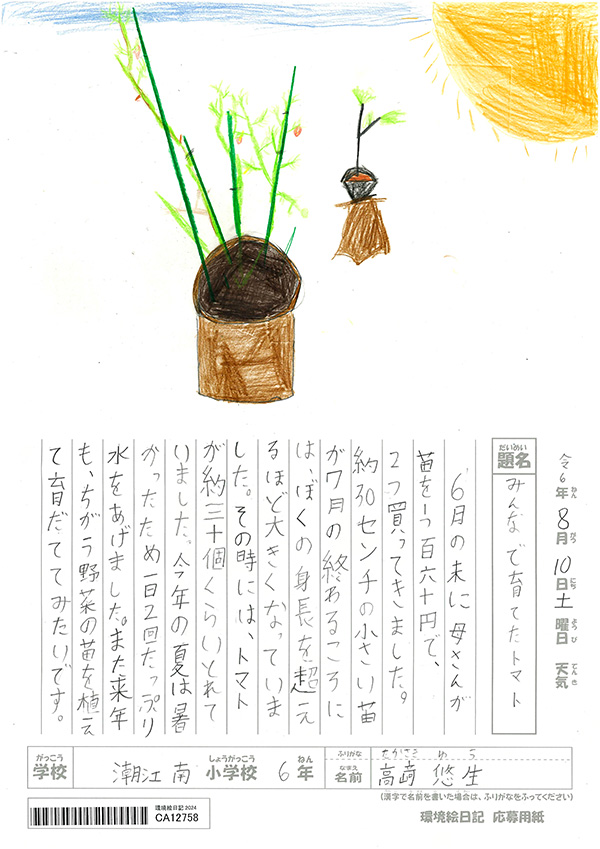 令6年 8月 10日 土曜日 天気
ねん がつ にち ようび てんき
だいめい
題名
みんなで育てたトマト
6月の末に母さんが
苗を一つ百六十円で、
2つ買ってきました。
約30センチの小さい苗
が7月の終わるころに
は、ぼくの身長を超え
るほど大きくなっていま
した。その時には、トマト
が約三十個くらいとれて
いました。今年の夏は暑
かったため一日2回たっぷり
水をあげました。また来年
も、ちがう野菜の苗を植え
て育だててみたいです。
がっこう しょうがっこう ねん
学校 潮江南 小学校 6年
ふりがな たかさき ゆう
なまえ
名前 高﨑 悠生
(漢字で名前を書いた場合は、ふりがなをふってください)
環境絵日記 2024
CA12758
環境絵日記 応募用紙